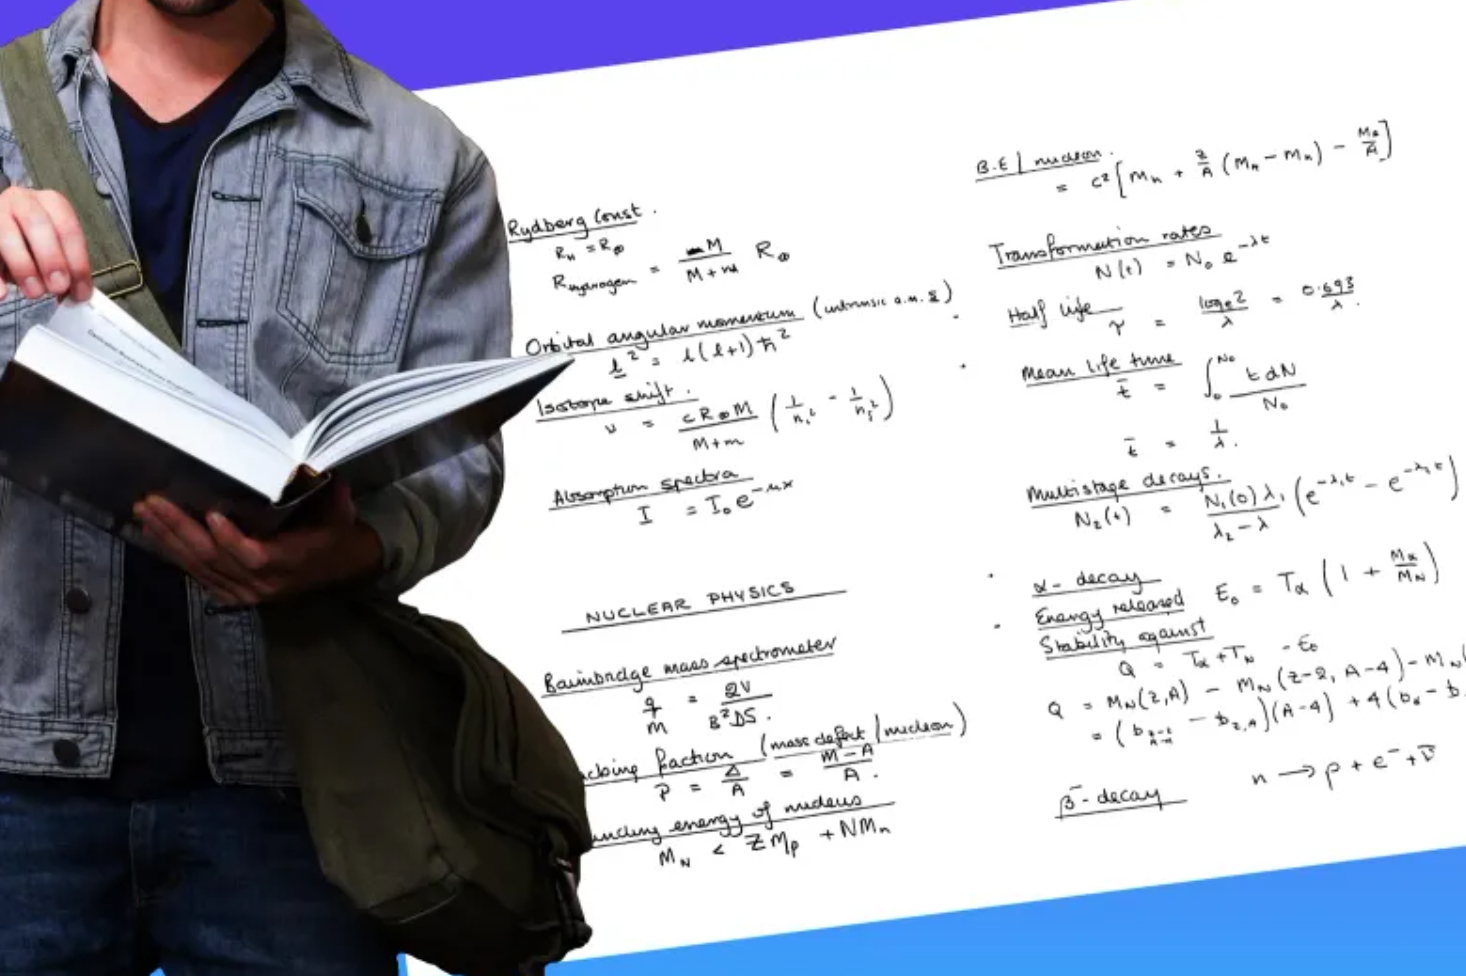 Rydberg Const.
R_H = R_∞
R_Hydrogen = M / (M + m) R_∞
Orbital angular momentum (intrinsic a.m. s)
l² = l(l+1)ħ²
Isotope shift.
ν = cR_∞M / (M+m) (1/n_i² - 1/n_j²)
Absorption spectra
I = I₀e^(-μx)
NUCLEAR PHYSICS
Bainbridge mass spectrometer
q/m = 2V / B²DS.
cking fraction (mass defect / nucleon)
P = Δ/A = (M-A)/A.
inding energy of nucleus
M_N < ZM_p + NM_n
B.E / nucleon.
= c² [M_n + Z/A (M_n - M_n) - M_A/A]
Transformation rates
N(t) = N₀ e^(-λt)
Half life
τ = log_e 2 / λ = 0.693 / λ.
Mean life time
t̄ = ∫₀^N₀ t dN / N₀
t̄ = 1/λ.
Multistage decays.
N₂(t) = N₁(0)λ₁ / (λ₂-λ) (e^(-λ₁t) - e^(-λ₂t))
α - decay
Energy released E₀ = T_α (1 + M_α/M_N)
Stability against
Q = T_α + T_N - E₀
Q = M_N(Z,A) - M_N(Z-2, A-4) - M_N(
= (b_(Z-2, A-4) - b_(Z,A))(A-4) + 4(b_α - b
β⁻ - decay n → p + e⁻ + ν̄